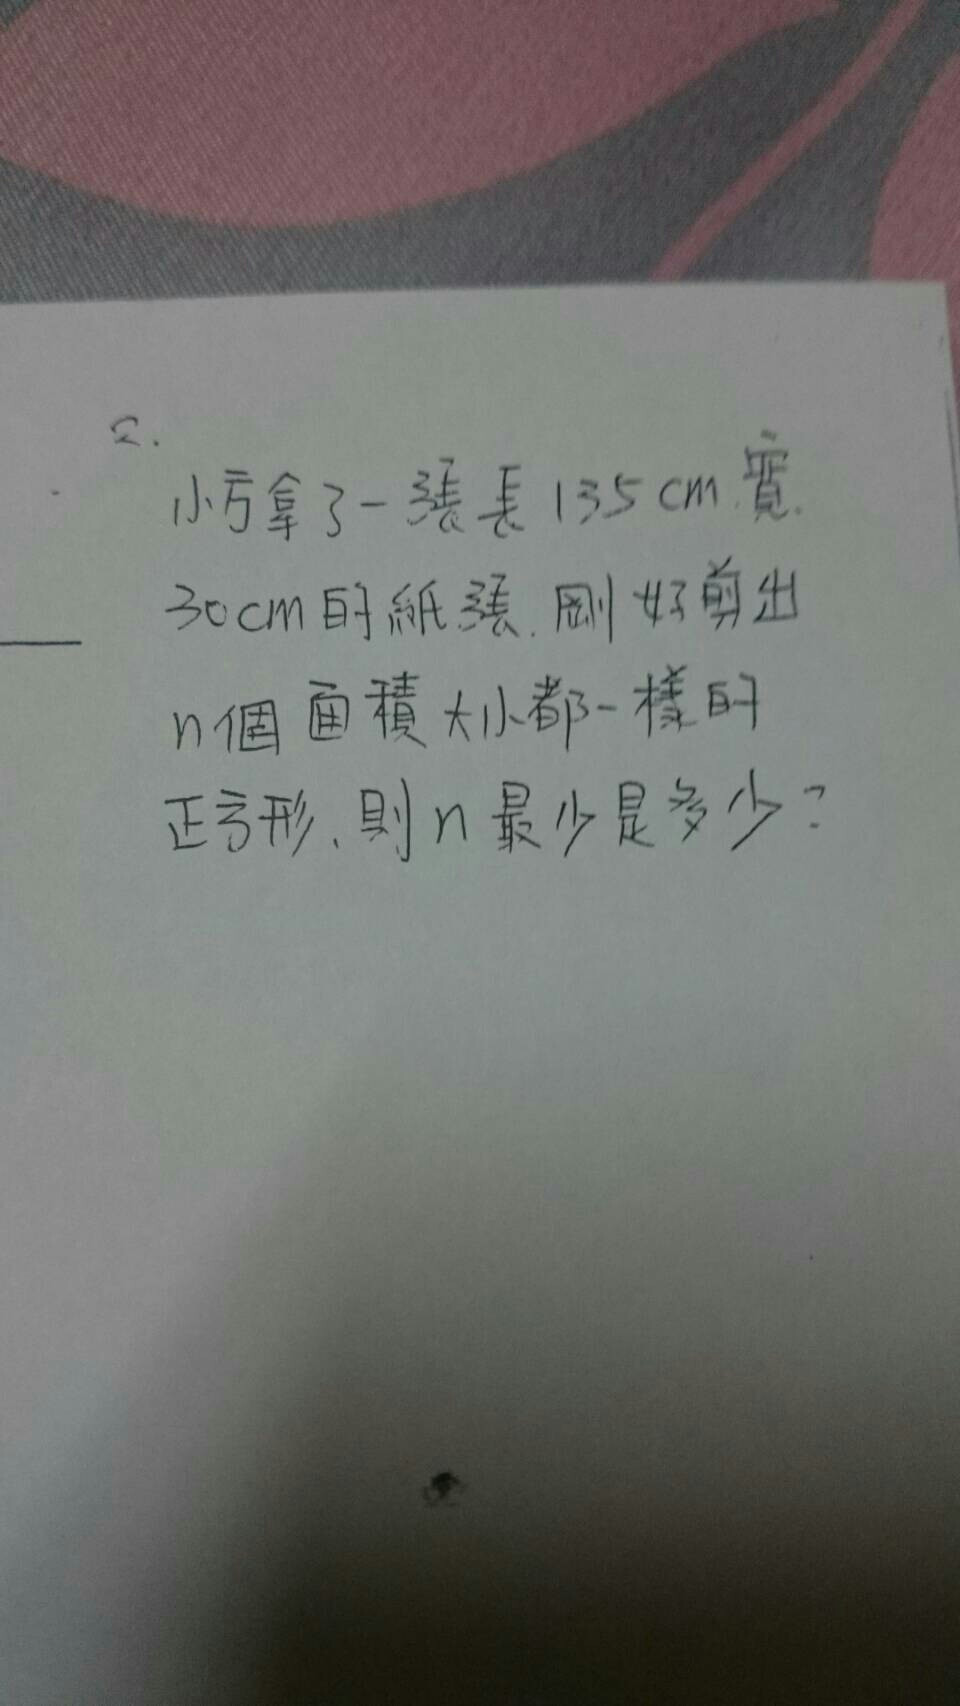 Q.
小方拿了一張長135cm寬
30cm的紙張.剛好剪出
n個面積大小都一樣的
正方形.則n最少是多少?